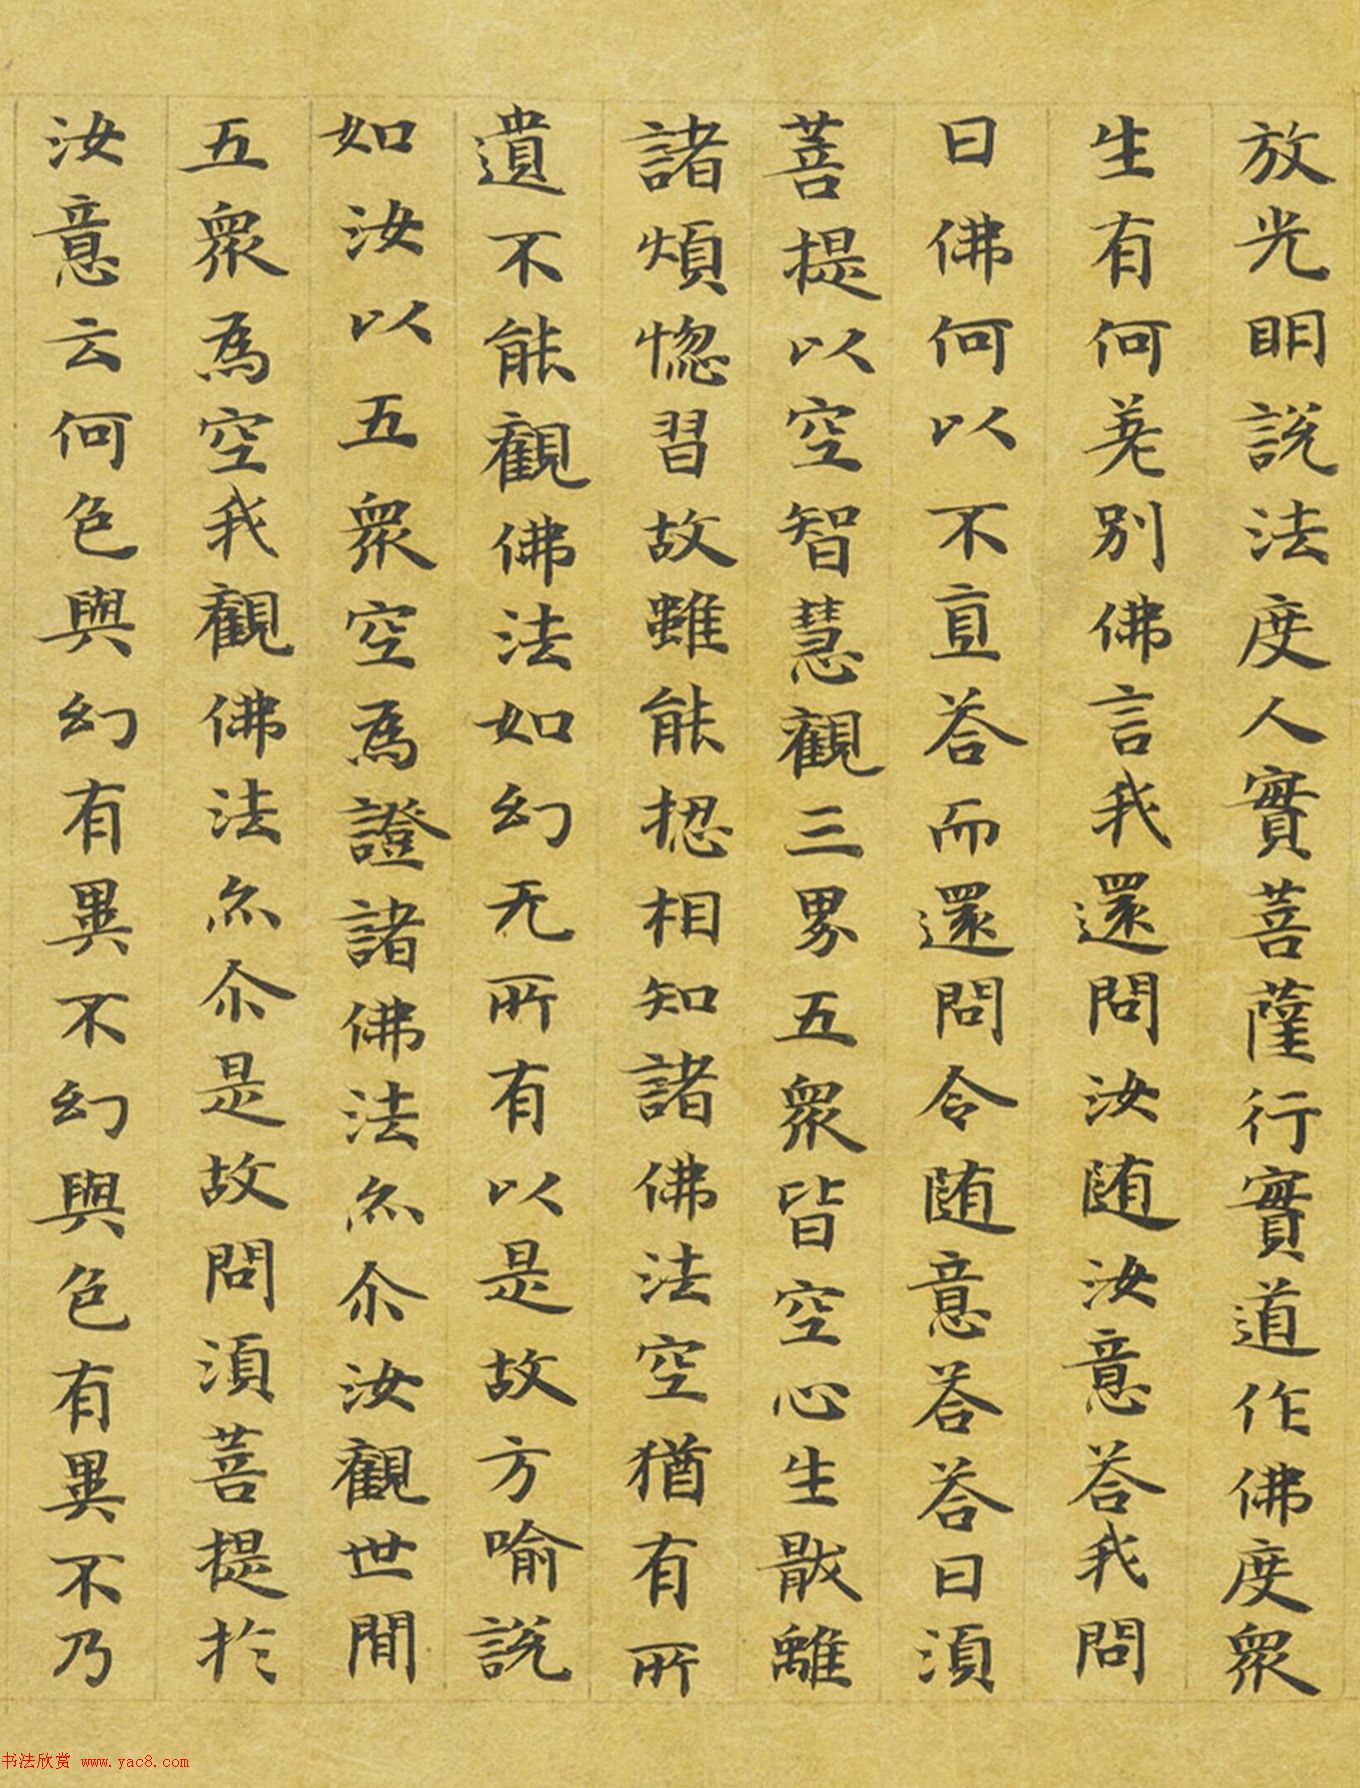 放光明說法度人實菩薩行實道作佛度眾
生有何差別佛言我還問汝随汝意荅我問
曰佛何以不直荅而還問令随意荅荅曰須
菩提以空智慧觀三界五眾皆空心生猒離
諸煩惱習故雖能揔相知諸佛法空猶有所
遺不能觀佛法如幻无所有以是故方喻說
如汝以五眾空為證諸佛法亦尒汝觀世間
五眾為空我觀佛法亦尒是故問須菩提於
汝意云何色與幻有異不幻與色有異不乃
书法欣赏 www.yac8.com